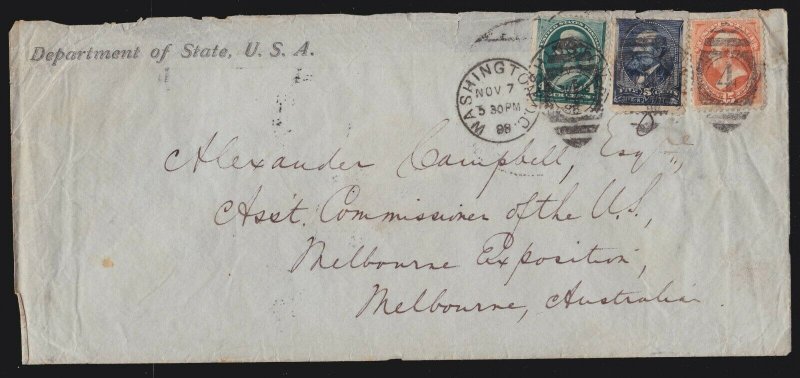 Department of State, U. S. A.
WASHINGTON, D.C.
NOV 7
5 30 PM
88
4
5
15
Alexander Campbell, Esq.,
Ass't. Commissioner of the U.S.,
Melbourne Exposition,
Melbourne, Australia